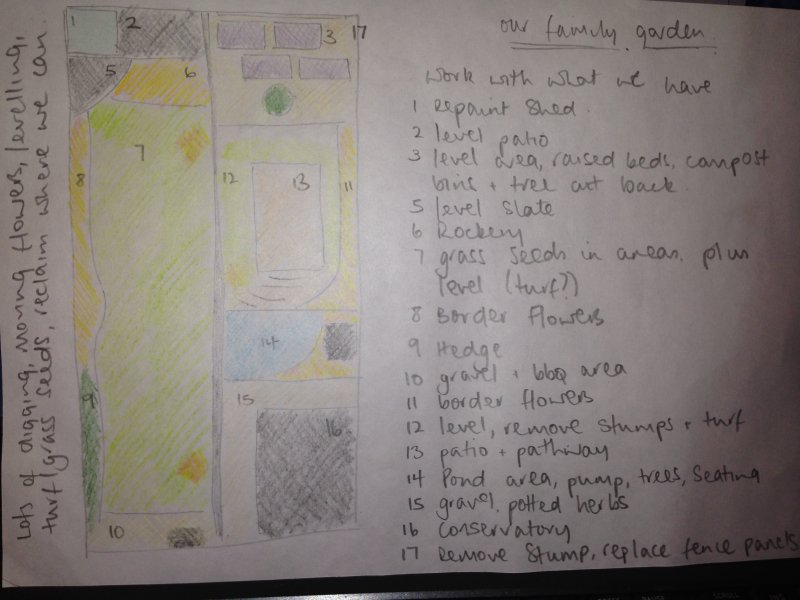 our family garden.
work with what we have
1 repaint shed.
2 level patio
3 level area, raised beds, compost
bins + tree cut back.
5 level slate
6 Rockery
7 grass seeds in areas. plus
level (turf?)
8 Border flowers
9 Hedge
10 gravel + bbq area
11 border flowers
12 level, remove stumps + turf
13 patio + pathway
14 Pond area, pump, trees, Seating
15 gravel, potted herbs
16 Conservatory
17 Remove Stump, replace fence panels
Lots of digging, moving flowers, levelling,
turf/grass seeds, reclaim where we can.
1
2
3
17
5
6
7
8
12
13
11
14
9
15
16
10